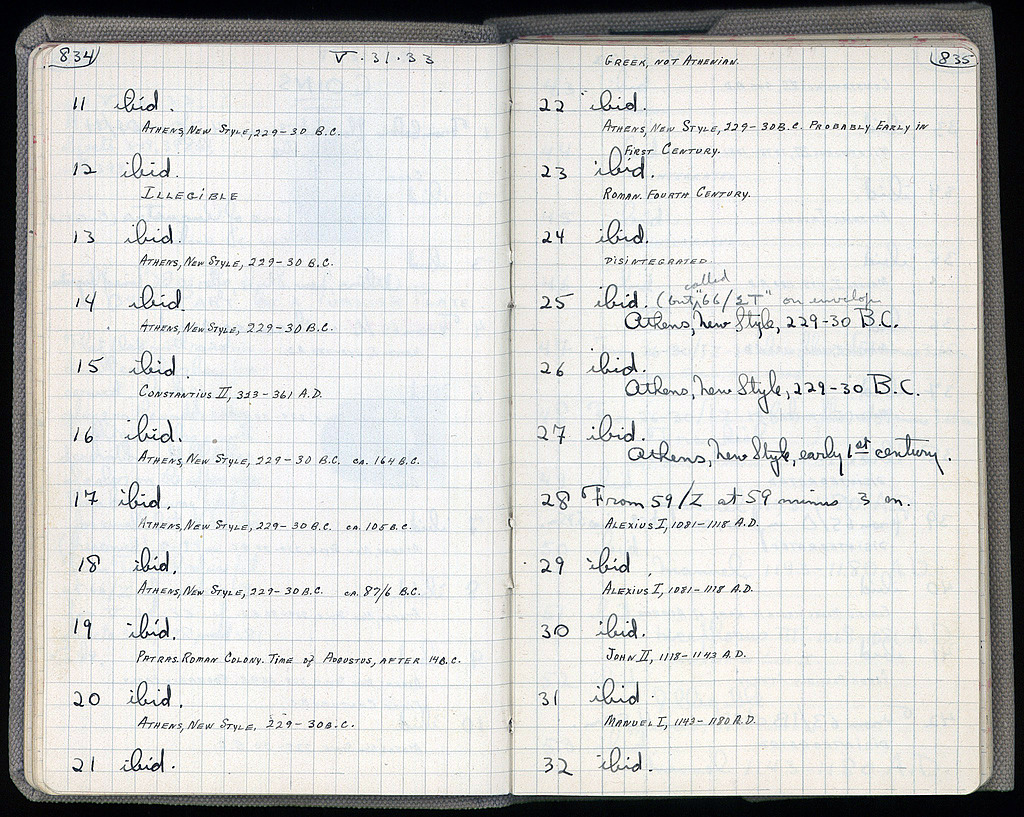 834
V · 31 · 33
11 ibid.
ATHENS, NEW STYLE, 229-30 B.C.
12 ibid.
ILLEGIBLE
13 ibid.
ATHENS, NEW STYLE, 229-30 B.C.
14 ibid.
ATHENS, NEW STYLE, 229-30 B.C.
15 ibid.
CONSTANTIUS II, 323-361 A.D.
16 ibid.
ATHENS, NEW STYLE, 229-30 B.C. ca. 164 B.C.
17 ibid.
ATHENS, NEW STYLE, 229-30 B.C. ca. 105 B.C.
18 ibid.
ATHENS, NEW STYLE, 229-30 B.C. ca. 87/6 B.C.
19 ibid.
PATRAS. ROMAN COLONY. TIME of AUGUSTUS, AFTER 14 B.C.
20 ibid.
ATHENS, NEW STYLE, 229-30 B.C.
21 ibid.
835
GREEK, NOT ATHENIAN.
22 ibid.
ATHENS, NEW STYLE, 229-30 B.C. PROBABLY EARLY IN
FIRST CENTURY.
23 ibid.
ROMAN. FOURTH CENTURY.
24 ibid.
DISINTEGRATED.
called
25 ibid. (but "66/ΣΤ" on envelop
Athens, New Style, 229-30 B.C.
26 ibid.
Athens, New Style, 229-30 B.C.
27 ibid.
Athens, New Style, early 1st century.
28 From 59/Z at 59 minus 3 cm.
ALEXIUS I, 1081-1118 A.D.
29 ibid.
ALEXIUS I, 1081-1118 A.D.
30 ibid.
JOHN II, 1118-1143 A.D.
31 ibid.
MANUEL I, 1143-1180 A.D.
32 ibid.